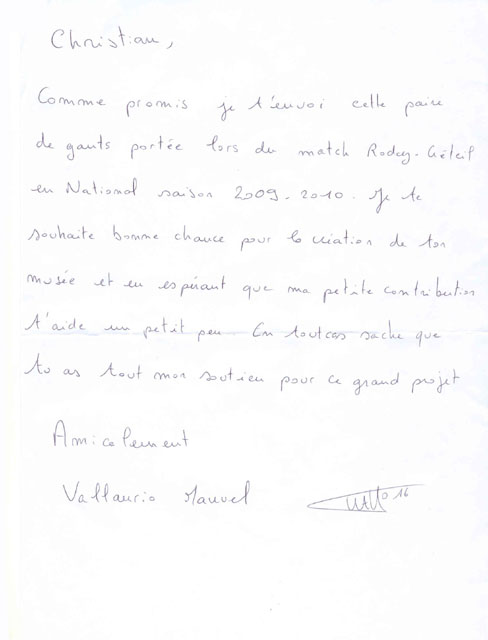 Christian,
Comme promis je t'envoi cette paire
de gants portée lors du match Rodez-Créteil
en National saison 2009-2010. Je te
souhaite bonne chance pour la création de ton
musée et en espérant que ma petite contribution
t'aide un petit peu. En toutcas sache que
tu as tout mon soutien pour ce grand projet
Amicalement
Vallaurio Manuel